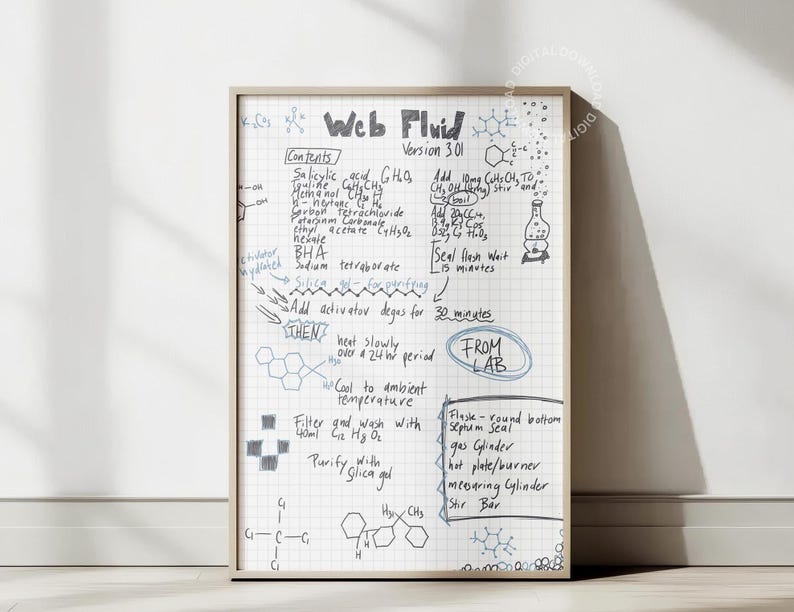 Web Fluid
Version 3.01
K₂CO₃
K K
Contents
Salicylic acid C₇H₆O₃
Touline C₆H₅CH₃
Methanol CH₃O H
n-heptane C₇ H₁₆
Carbon tetrachloride
Potassium Carbonate
ethyl acetate C₄H₈O₂
hexate
BHA
Sodium tetraborate
Add 10mg C₆H₅CH₃ TO
CH₃OH (4mg) stir and
boil
Seal flash wait
15 minutes
OH
OH
C
C
C
hydrated
Silica gel - for purifying
Add activator degas for 30 minutes
THEN
heat slowly
over a 24 hr period
H₃C
H₃C
Cool to ambient
temperature
Filter and wash with
40ml C₁₂ H₈ O₂
Purify with
Silica gel
FROM
LAB
Flask - round bottom
Septum Seal
gas Cylinder
hot plate/burner
measuring Cylinder
Stir Bar
Cl
Cl C Cl
Cl
H₃C CH₃
H
H
DIGITAL DOWNLOAD DIGITAL